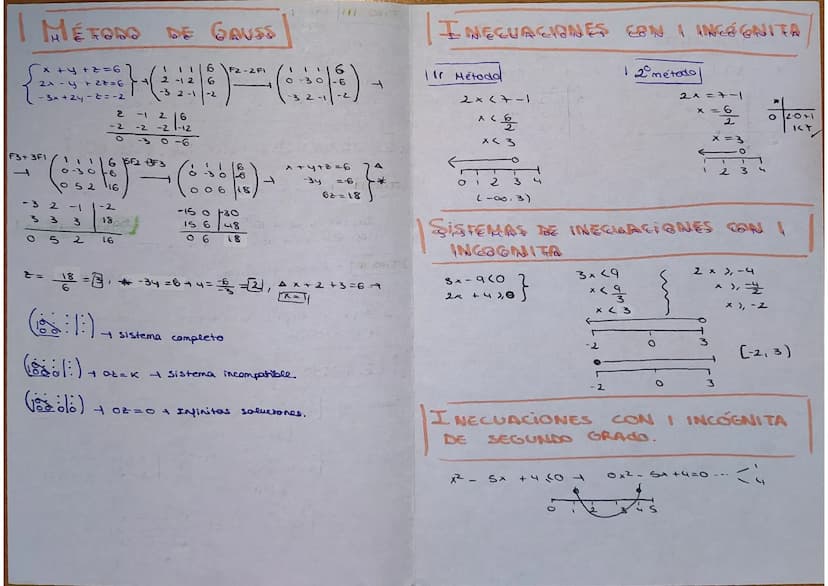 MÉTODO DE GAUSS
x + y + z = 6
2x - y + 2z = 6
-3x + 2y - z = -2
→ ( 1 1 1 | 6
2 -1 2 | 6
-3 2 -1 | -2 )
F2 - 2F1 → ( 1 1 1 | 6
0 -3 0 | -6
-3 2 -1 | -2 ) →
2 -1 2 | 6
-2 -2 -2 | -12
0 -3 0 -6
F3+3F1 → ( 1 1 1 | 6
0 -3 0 | -6
0 5 2 | 16 )
( 1 1 1 | 6
0 -3 0 | -6
0 0 6 | 18 ) →
x + y + z = 6 △
-3y = 6 *
6z = 18
-3 2 -1 | -2
3 3 3 | 18
0 5 2 16
-15 0 | -30
15 6 | 48
0 6 18
z = 18/6 = 3, * -3y = 6 → y = -6/-3 = 2, △ x + 2 + 3 = 6 →
x = 1
→ sistema completo
→ 0z = K → sistema incompatible
→ 0z = 0 → infinitas soluciones.
INECUACIONES CON 1 INCÓGNITA
1r Método
2x < 7 - 1
x < 6/2
x < 3
0 1 2 3 4
(-∞, 3)
2º método
2x = 7 - 1
x = 6/2
x = 3
1 2 3 4
SISTEMAS DE INECUACIONES CON 1
INCOGNITA
3x - 9 < 0
2x + 4 ⩾ 0
3x < 9
x < 9/3
x < 3
2x ⩾ -4
x ⩾ -4/2
x ⩾ -2
-2 0 3
[-2, 3)
-2 0 3
INECUACIONES CON 1 INCÓGNITA
DE SEGUNDO GRADO.
x² - 5x + 4 ⩽ 0 → 0x² - 5x + 4 = 0 ... < 1
4
0 1 2 3 4 5